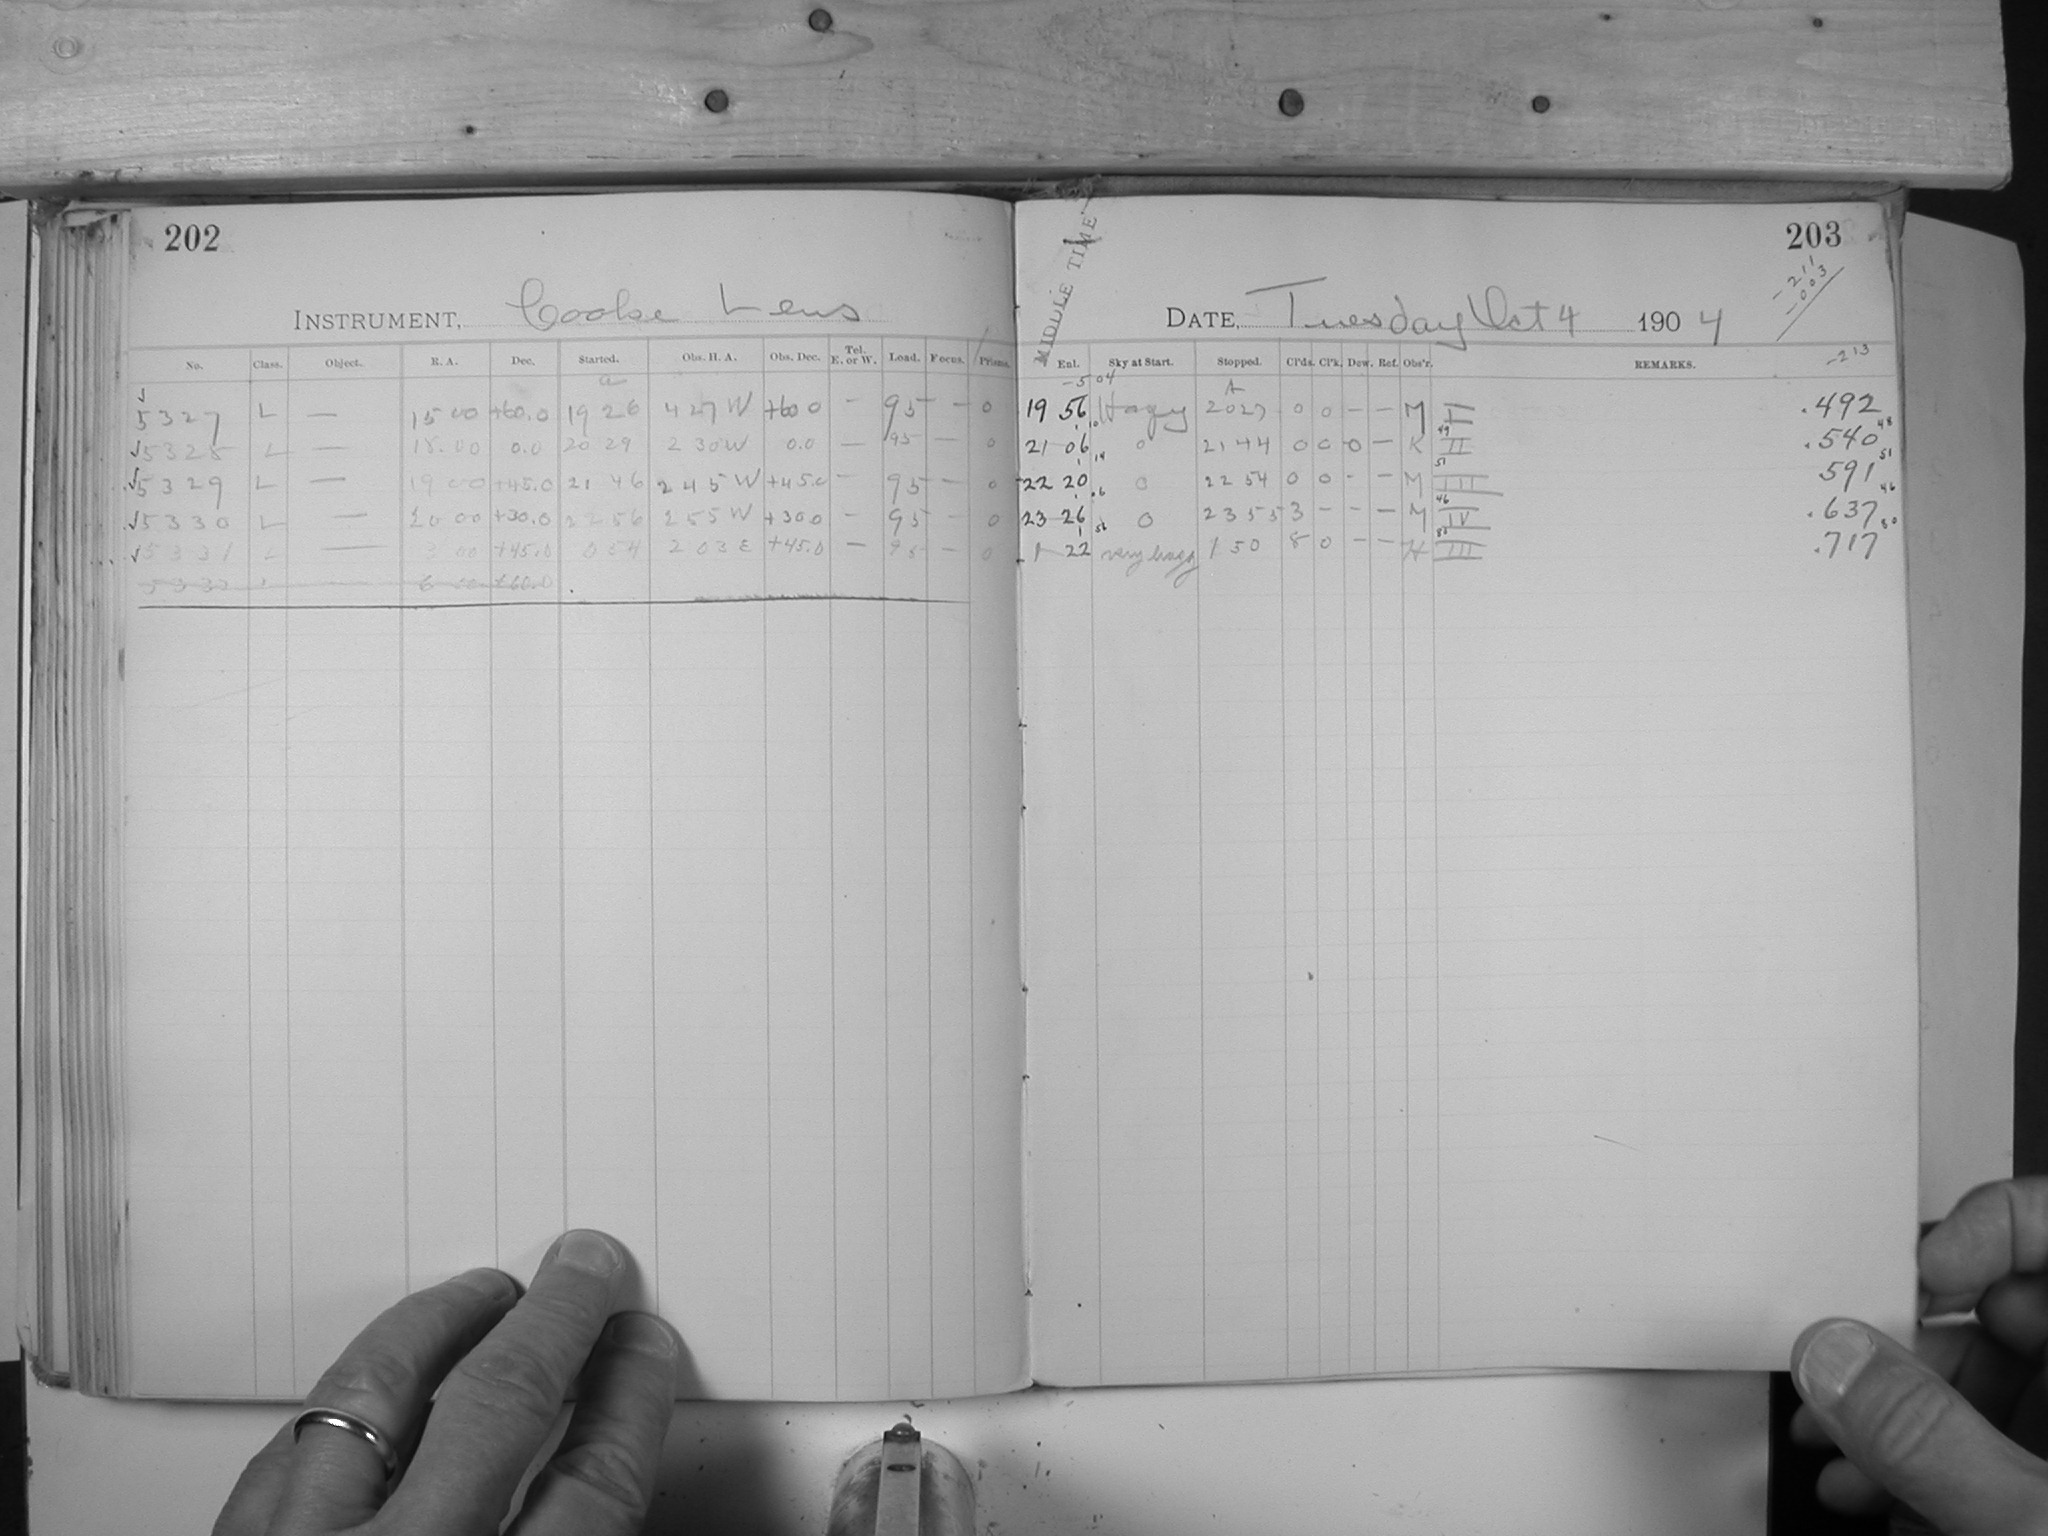 202
INSTRUMENT, Cooke Lens
No. Class. Object. R. A. Dec. Started. Obs. H. A. Obs. Dec. Tel. E. or W. Load. Focus. Prisms.
5327 L — 15 00 +60.0 19 26 4 27 W +60 0 — 95 — 0
5328 L — 18.00 0.0 20 29 2 30 W 0.0 — 95 — 0
5329 L — 19 00 +45.0 21 46 2 45 W +45.0 — 95 — 0
5330 L — 20 00 +30.0 22 56 2 55 W +300 — 95 — 0
5331 L — 3 00 +45.0 0 54 2 03 E +45.0 — 95 — 0
5332 L — 6 00 +60.0
203
-211
-003
MIDDLE TIME
DATE, Tuesday Oct 4 1904
-213
Enl. Sky at Start. Stopped. Cl'ds. Cl'k. Dew. Ref. Obs'r. REMARKS.
-5 04
19 56 Hazy 2027 0 0 — — M I .492
21 06 0 21 44 0 0 0 — K II .540 48
22 20 0 22 54 0 0 - — M III .591 51
23 26 0 23 55 3 — — — M IV .637 46
1 22 very hazy 1 50 8 0 — — H III .717 80